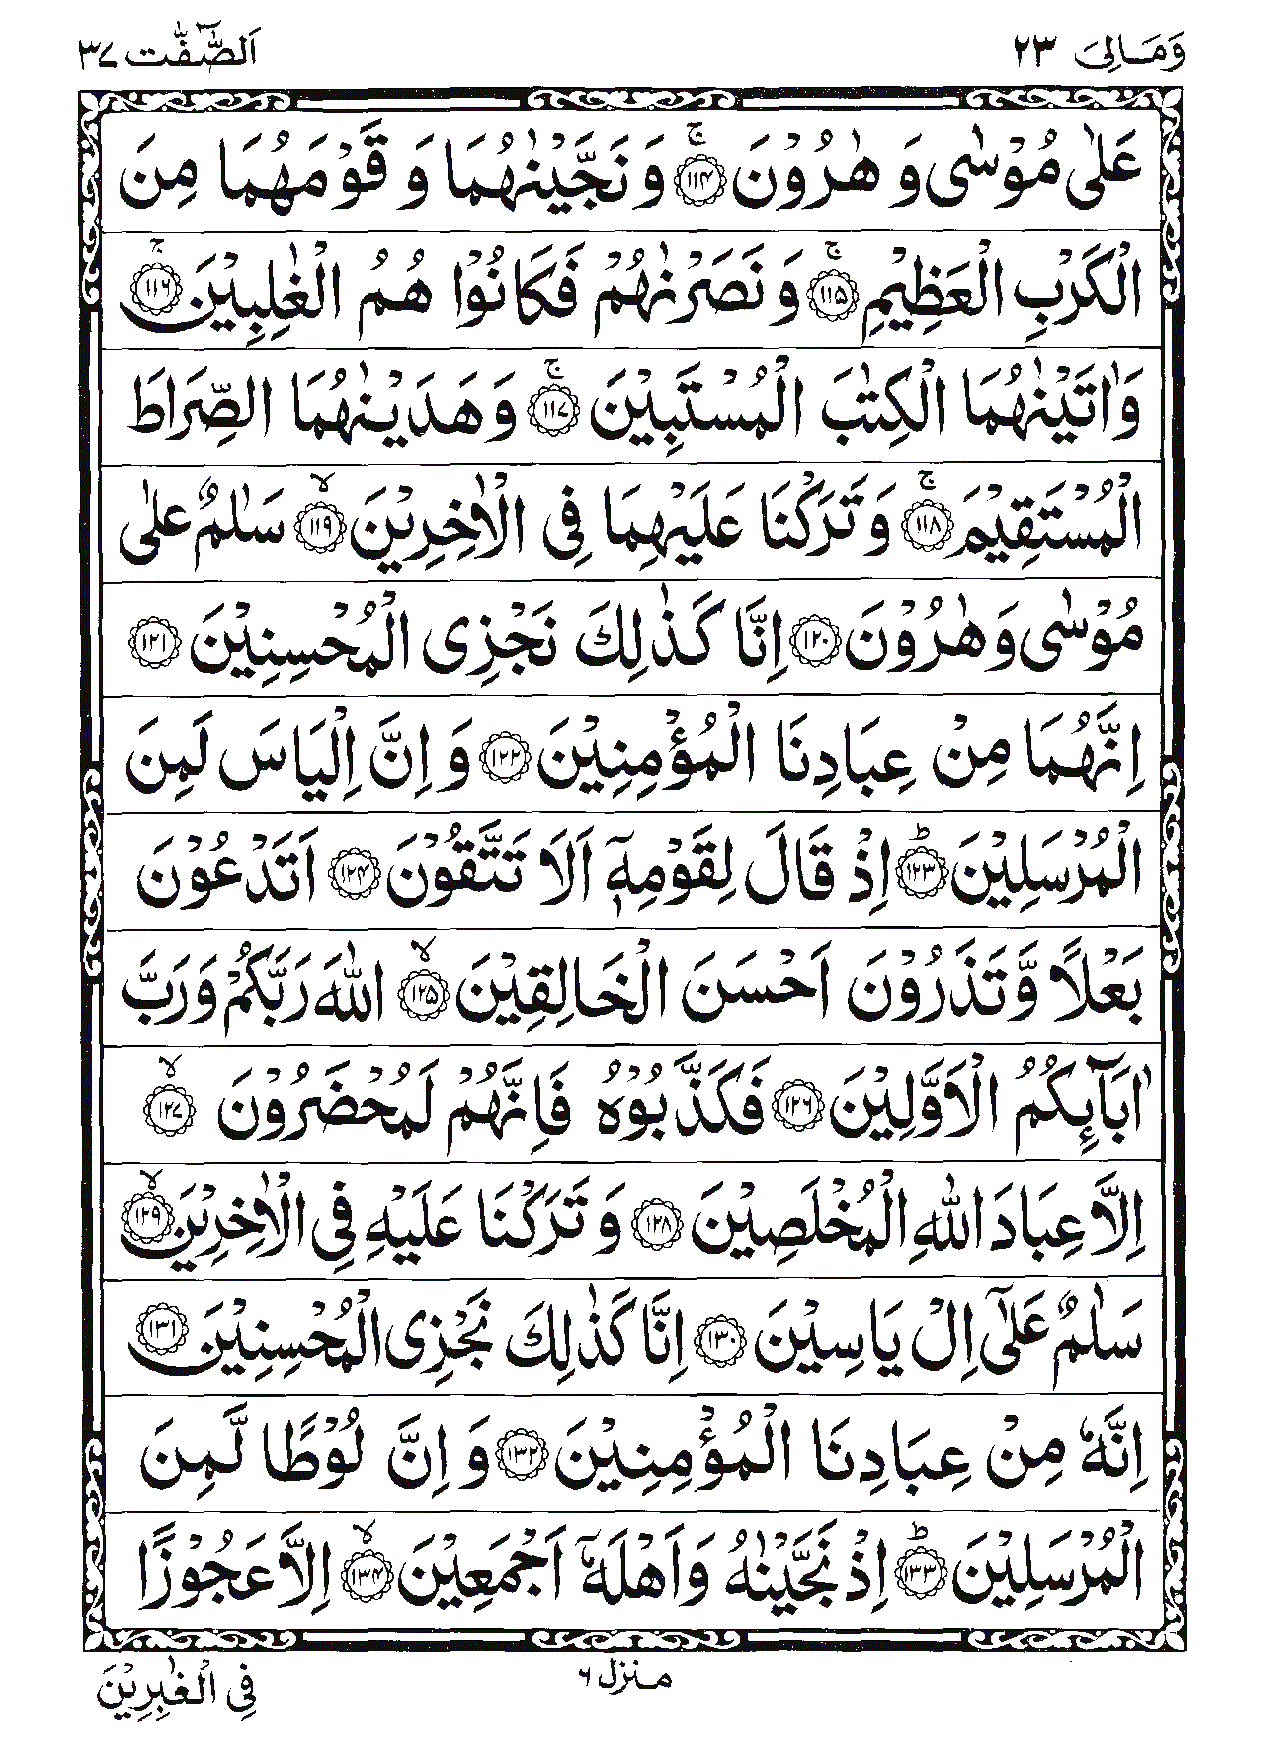 وَمَالِیَ ٢٣ اَلصّٰٓفّٰت ٣٧
عَلٰی مُوْسٰی وَ هٰرُوْنَ ۚ ﴿١١٤﴾ وَ نَجَّيْنٰهُمَا وَ قَوْمَهُمَا مِنَ
الْكَرْبِ الْعَظِيْمِ ۚ ﴿١١٥﴾ وَ نَصَرْنٰهُمْ فَكَانُوْا هُمُ الْغٰلِبِيْنَ ۚ ﴿١١٦﴾
وَاٰتَيْنٰهُمَا الْكِتٰبَ الْمُسْتَبِيْنَ ۚ ﴿١١٧﴾ وَ هَدَيْنٰهُمَا الصِّرَاطَ
الْمُسْتَقِيْمَ ۚ ﴿١١٨﴾ وَ تَرَكْنَا عَلَيْهِمَا فِی الْاٰخِرِيْنَ ۙ ﴿١١٩﴾ سَلٰمٌ عَلٰی
مُوْسٰی وَ هٰرُوْنَ ﴿١٢٠﴾ اِنَّا كَذٰلِكَ نَجْزِی الْمُحْسِنِيْنَ ﴿١٢١﴾
اِنَّهُمَا مِنْ عِبَادِنَا الْمُؤْمِنِيْنَ ﴿١٢٢﴾ وَ اِنَّ اِلْيَاسَ لَمِنَ
الْمُرْسَلِيْنَ ؕ ﴿١٢٣﴾ اِذْ قَالَ لِقَوْمِهٖۤ اَلَا تَتَّقُوْنَ ﴿١٢٤﴾ اَتَدْعُوْنَ
بَعْلًا وَّ تَذَرُوْنَ اَحْسَنَ الْخَالِقِيْنَ ۙ ﴿١٢٥﴾ اللّٰهَ رَبَّكُمْ وَرَبَّ
اٰبَآىِٕكُمُ الْاَوَّلِيْنَ ﴿١٢٦﴾ فَكَذَّبُوْهُ فَاِنَّهُمْ لَمُحْضَرُوْنَ ۙ ﴿١٢٧﴾
اِلَّا عِبَادَ اللّٰهِ الْمُخْلَصِيْنَ ﴿١٢٨﴾ وَ تَرَكْنَا عَلَيْهِ فِی الْاٰخِرِيْنَ ۙ ﴿١٢٩﴾
سَلٰمٌ عَلٰۤی اِلْ يَاسِيْنَ ﴿١٣٠﴾ اِنَّا كَذٰلِكَ نَجْزِی الْمُحْسِنِيْنَ ﴿١٣١﴾
اِنَّهٗ مِنْ عِبَادِنَا الْمُؤْمِنِيْنَ ﴿١٣٢﴾ وَ اِنَّ لُوْطًا لَّمِنَ
الْمُرْسَلِيْنَ ؕ ﴿١٣٣﴾ اِذْ نَجَّيْنٰهُ وَاَهْلَهٗۤ اَجْمَعِيْنَ ۙ ﴿١٣٤﴾ اِلَّا عَجُوْزًا
منزل ٦
فِی الْغٰبِرِيْنَ